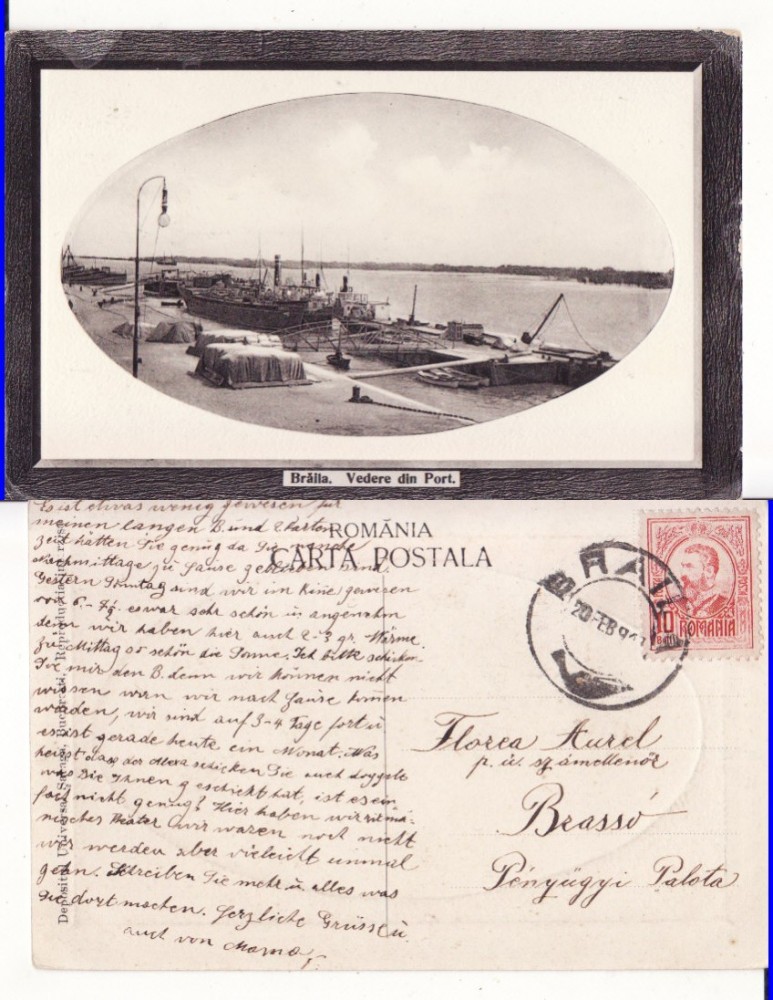 Brăila. Vedere din Port.
Es ist etwas wenig gewesen für
meinen langen B. und Karten
Zeit hätten Sie genug da Sie
Nachmittage zu Hause geblieben sind.
Gestern Sonntag sind wir im Kine gewesen
von 5.- es war sehr schön u angenehm
denn wir haben hier auch 2-3 gr. Wärme.
zu Mittag so schön die Sonne. Ich bitte schicken
Sie mir den B. denn wir können nicht
wissen wan wir nach Hause kommen
werden, wir sind auf 3-4 Tage fort u
es ist gerade heute ein Monat. Was
heisst das, der schicken Sie auch
was Sie Ihnen geschickt hat, ist es ein-
fach nicht genug? Hier haben wir rumä-
nisches Theater wir waren noch nicht
wir werden aber vieleicht einmal
gehn. Schreiben Sie mehr u. alles was
Sie dort machen. Herzliche Grüsse u.
auch von Mama
ROMÂNIA
CARTA POSTALA
Depositul Universal, Saraga, Bucuresti. Reproducția interzisă
BRAILA
20 FEB 91
10 BANI
ROMANIA
Florea Aurel
p. ü. számellenőr
Brassó
Pénzügyi Palota